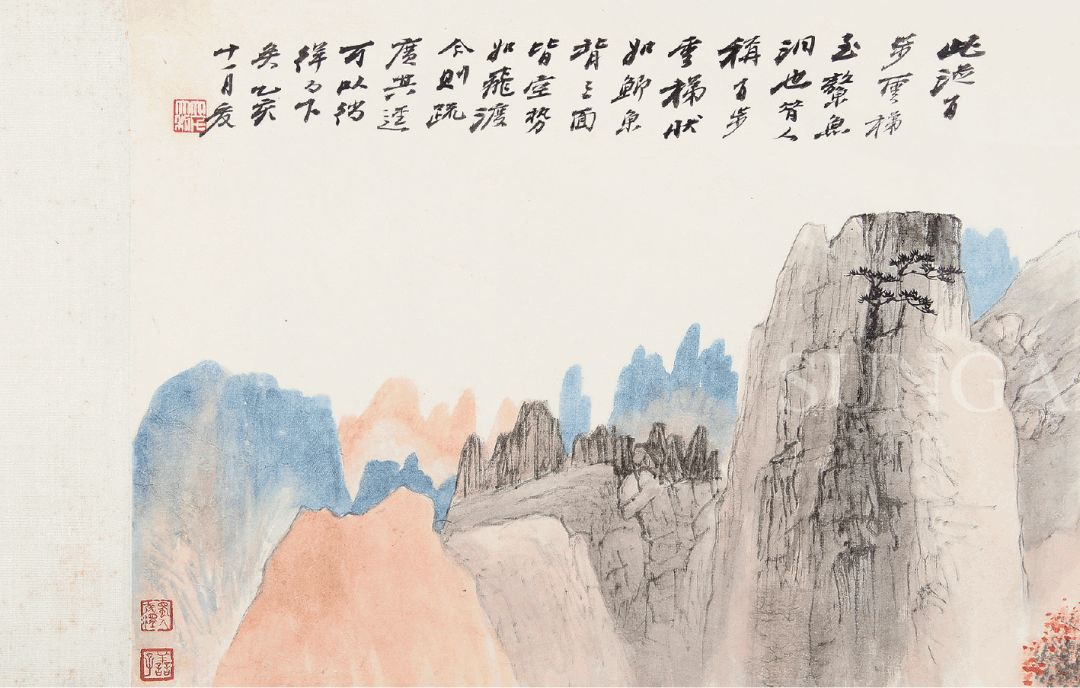 此從百
步雲梯
至鰲魚
洞也昔人
稱百步
雲梯狀
如鯽魚
背三面
皆空勢
如飛渡
今則疏
廣其逕
可以徜
徉而下
矣乙亥
十一月爰
善子
SUNGA